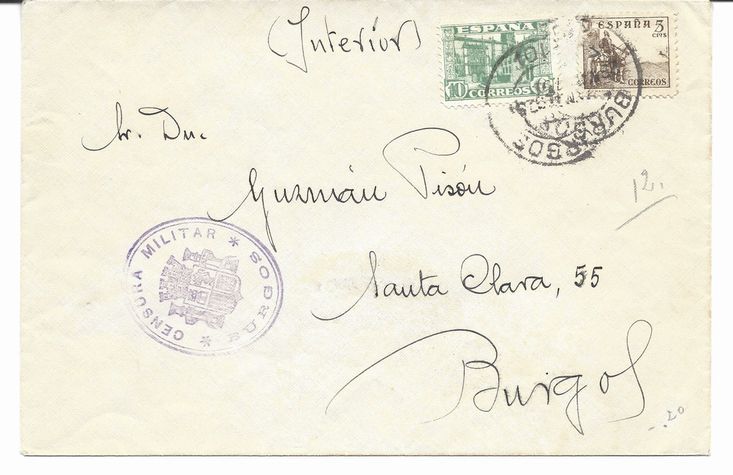 (Interior)
ESPAÑA
10 CORREOS
ESPAÑA 5
CTS
CORREOS
BURGOS
Sr. Dn.
Guzmán Pisón
12.
CENSURA MILITAR * BURGOS *
Santa Clara, 55
Burgos
20